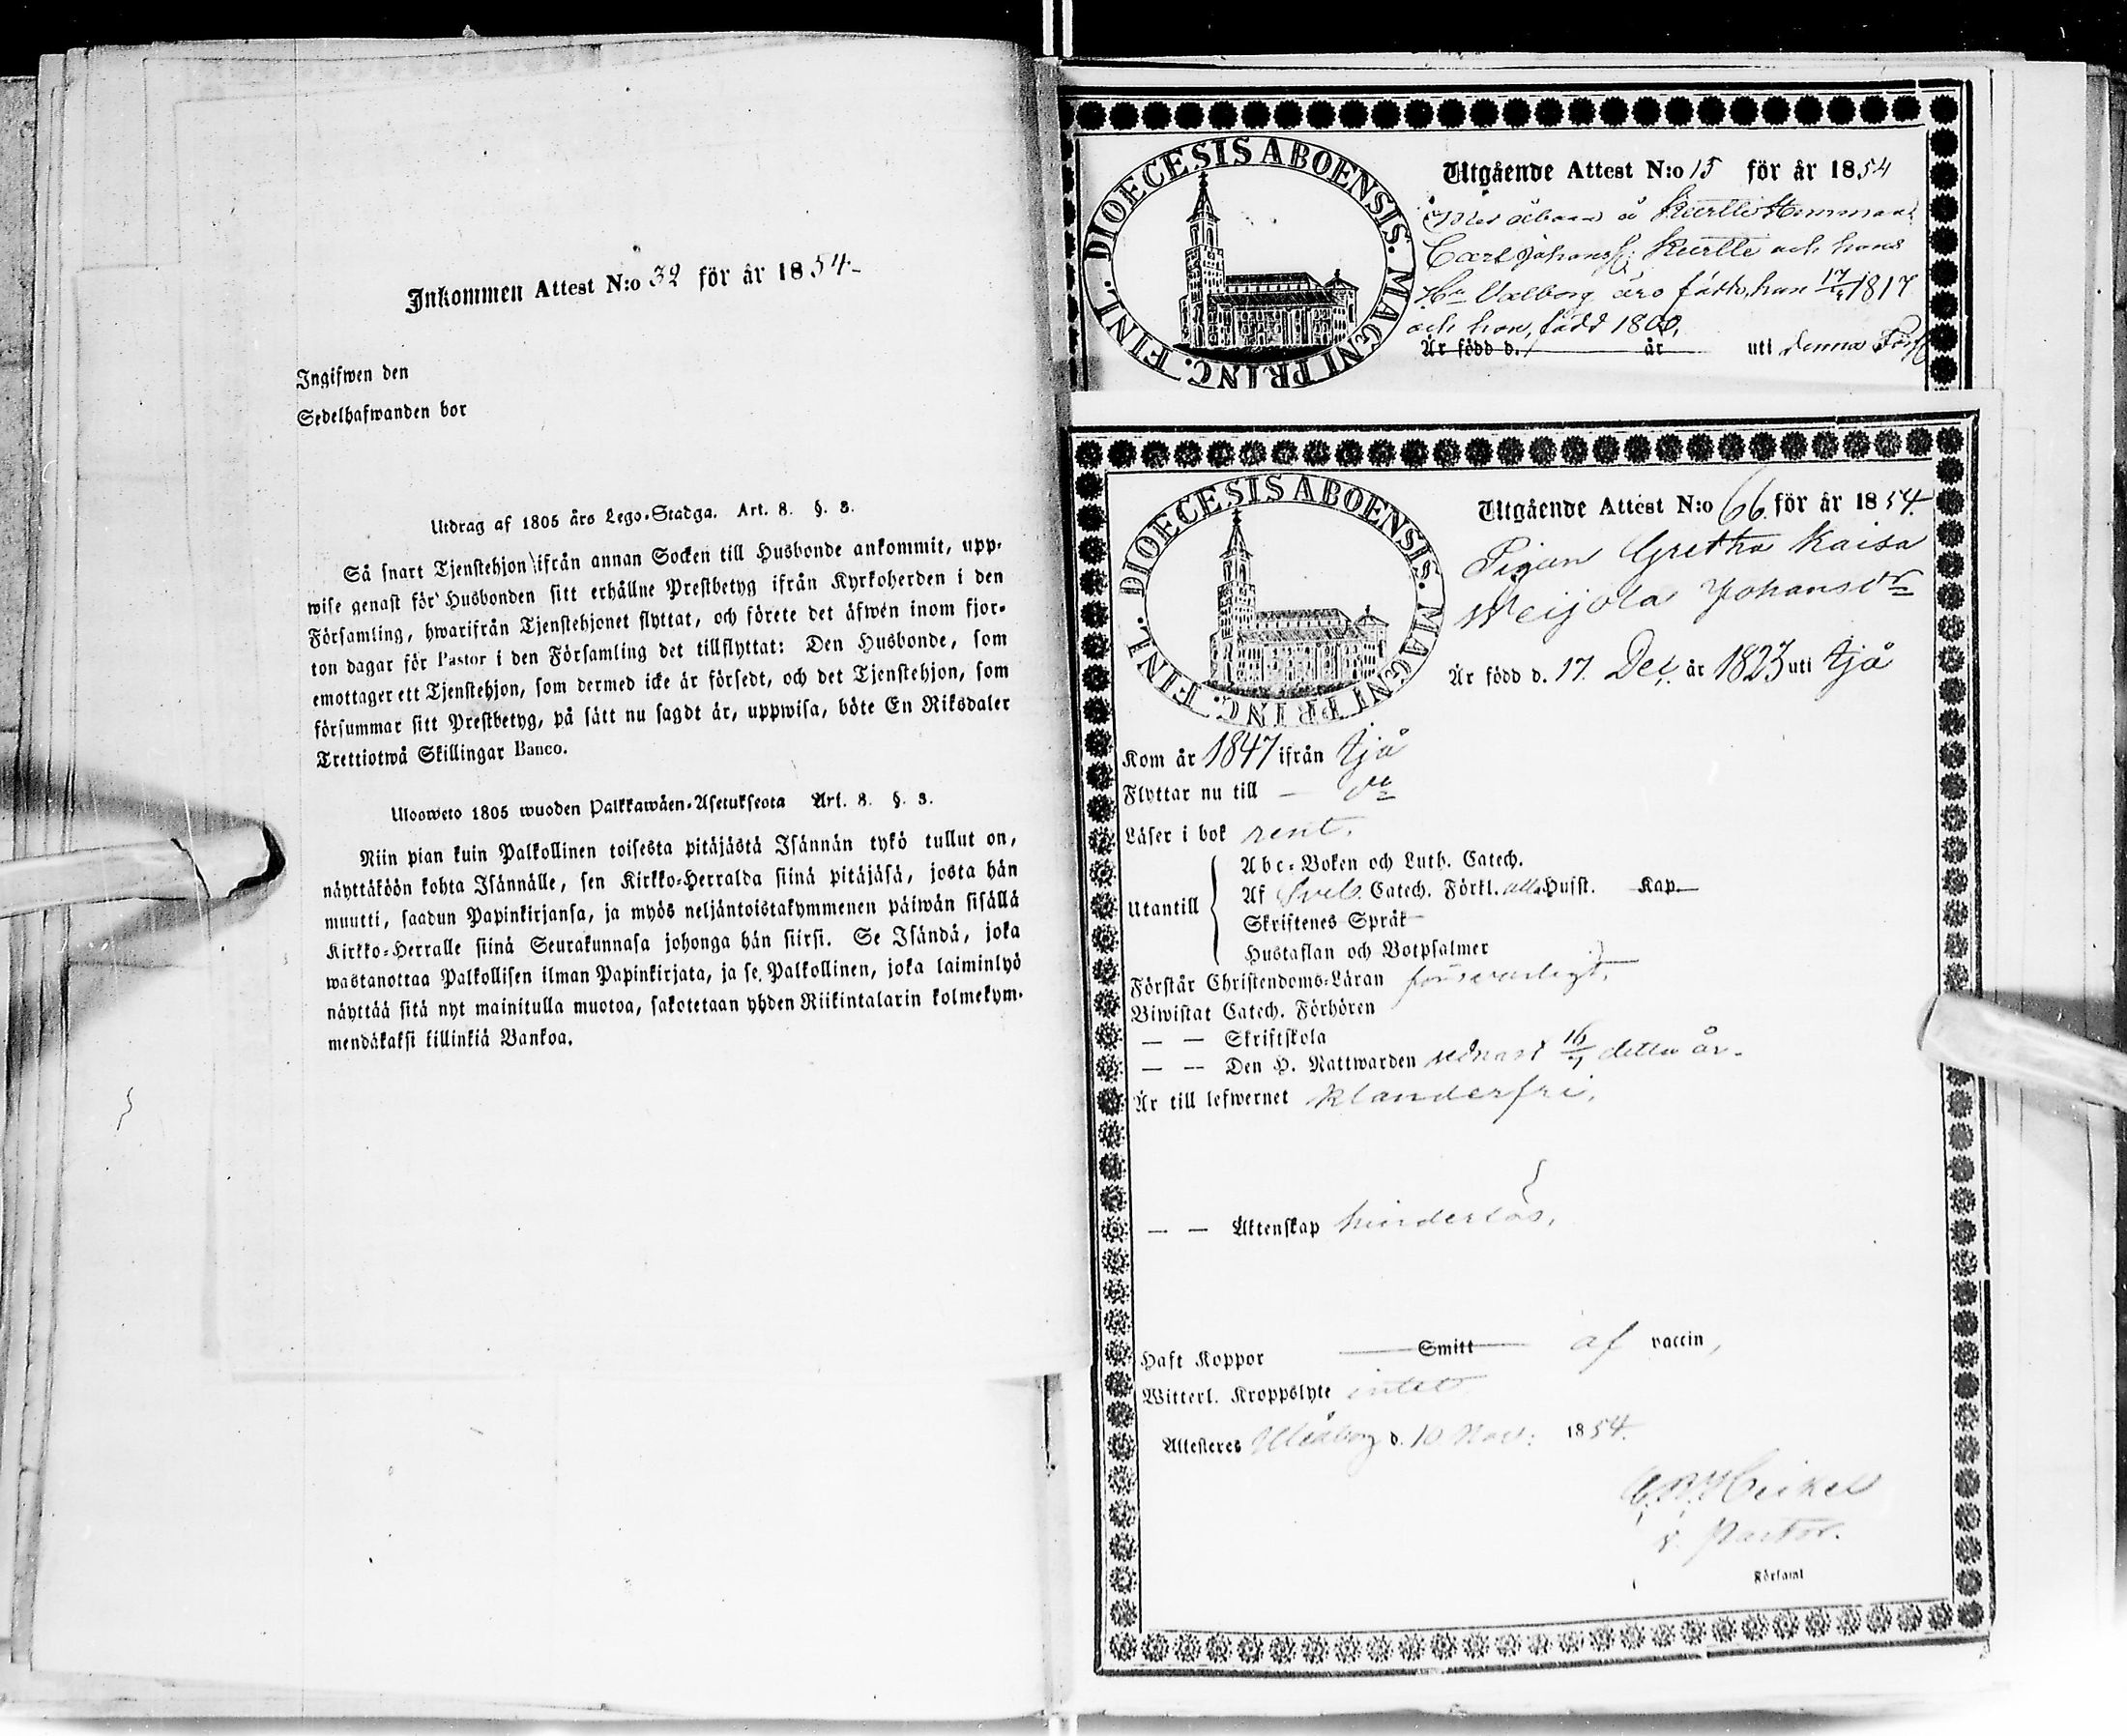 Inkommen Attest N:o 32 för år 1854.
Ingifwen den
Sedelhafwanden bor
Utdrag af 1805 års Lego-Stadga. Art. 8. §. 3.
Så snart Tjenstehjon ifrån annan Socken till Husbonde ankommit, upp-
wise genast för Husbonden sitt erhållne Prestbetyg ifrån Kyrkoherden i den
Församling, hwarifrån Tjenstehjonet flyttat, och förete det äfwen inom fjor-
ton dagar för Pastor i den Församling det tillflyttat: Den Husbonde, som
emottager ett Tjenstehjon, som dermed icke är försedt, och det Tjenstehjon, som
försummar sitt Prestbetyg, på sätt nu sagdt är, uppwisa, böte En Riksdaler
Trettiotwå Skillingar Banco.
Uloosweto 1805 wuoden Palkkawäen-Asetuksesta Art. 8. §. 3.
Niin pian kuin Palkollinen toisesta pitäjästä Isännän tykö tullut on,
näyttäköön kohta Isännälle, sen Kirkko-Herralda siinä pitäjäsä, josta hän
muutti, saadun Papinkirjansa, ja myös neljäntoistakymmenen päiwän sisällä
Kirkko-Herralle siinä Seurakunnasa johonga hän siirsi. Se Isändä, joka
wastanottaa Palkollisen ilman Papinkirjata, ja se Palkollinen, joka laiminlyö
näyttää sitä nyt mainitulla muotoa, sakotetaan yhden Riikintalarin kolmekym-
mendäkaksi killinkiä Bankoa.
DIOECESIS ABOENSIS. MAGNI PRINC. FINL.
Utgående Attest N:o 15 för år 1854
å Kurtti Hemman
Carl Johanss: Kurtti och hans
Hu Valborg äro födde, han 17/4 1817
och hon, född 1800,
Är född d. år uti denna Förs
DIOECESIS ABOENSIS. MAGNI PRINC. FINL.
Utgående Attest N:o 66 för år 1854.
Pigan Gretha Kaisa
Weijola Johansdr
Är född d. 17. Dec. år 1823 uti Ijå
Kom år 1847 ifrån Ijå
Flyttar nu till — do
Läser i bok rent.
Utantill
Abc-Boken och Luth. Catech.
Af Sveb. Catech. Förkl. alla Hufst. Kap.
Skriftenes Språk
Hustaflan och Botpsalmer
Förstår Christendoms-Läran försvarligt.
Biwistat Catech. Förhören
— — Skriftskola
— — Den H. Nattwarden sednast 16/7 detta år.
Är till lefwernet klanderfri,
— — Äktenskap hinderlös,
Haft Koppor Smitt af vaccin,
Witterl. Kroppslyte intet
Attesteres Uleåborg d. 10 Nov: 1854.
Heikel
v. Pastor.
Församl